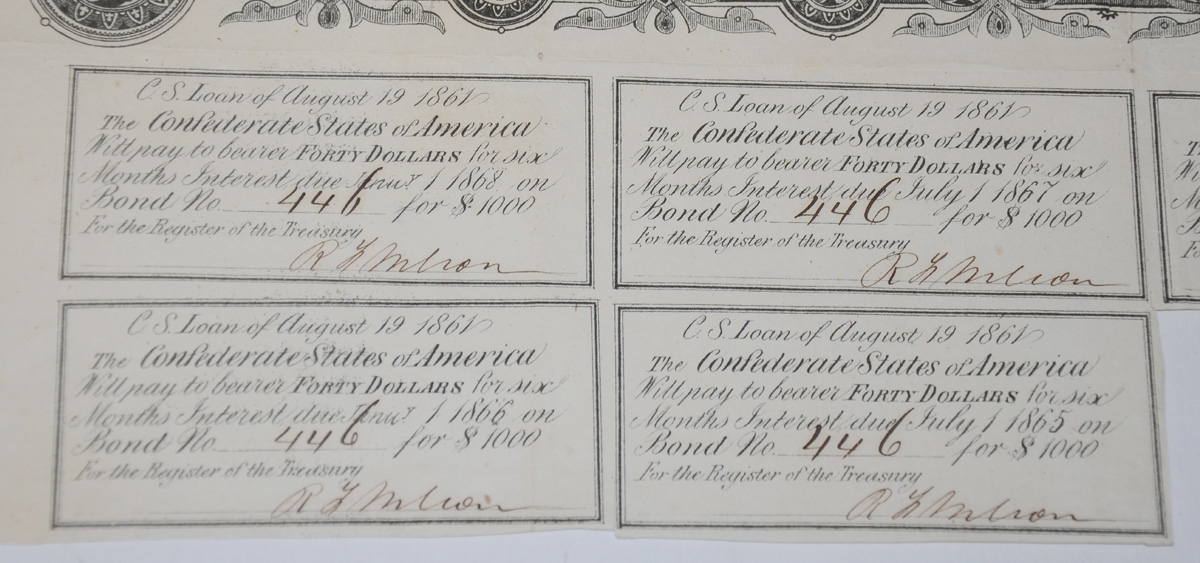 C. S. Loan of August 19 1861
The Confederate States of America
Will pay to bearer FORTY DOLLARS for six
Months Interest due Janu.y 1 1868 on
Bond No. 446 for $ 1000
For the Register of the Treasury
C. S. Loan of August 19 1861
The Confederate States of America
Will pay to bearer FORTY DOLLARS for six
Months Interest due July 1 1867 on
Bond No. 446 for $ 1000
For the Register of the Treasury
C. S. Loan of August 19 1861
The Confederate States of America
Will pay to bearer FORTY DOLLARS for six
Months Interest due Janu.y 1 1866 on
Bond No. 446 for $ 1000
For the Register of the Treasury
C. S. Loan of August 19 1861
The Confederate States of America
Will pay to bearer FORTY DOLLARS for six
Months Interest due July 1 1865 on
Bond No. 446 for $ 1000
For the Register of the Treasury